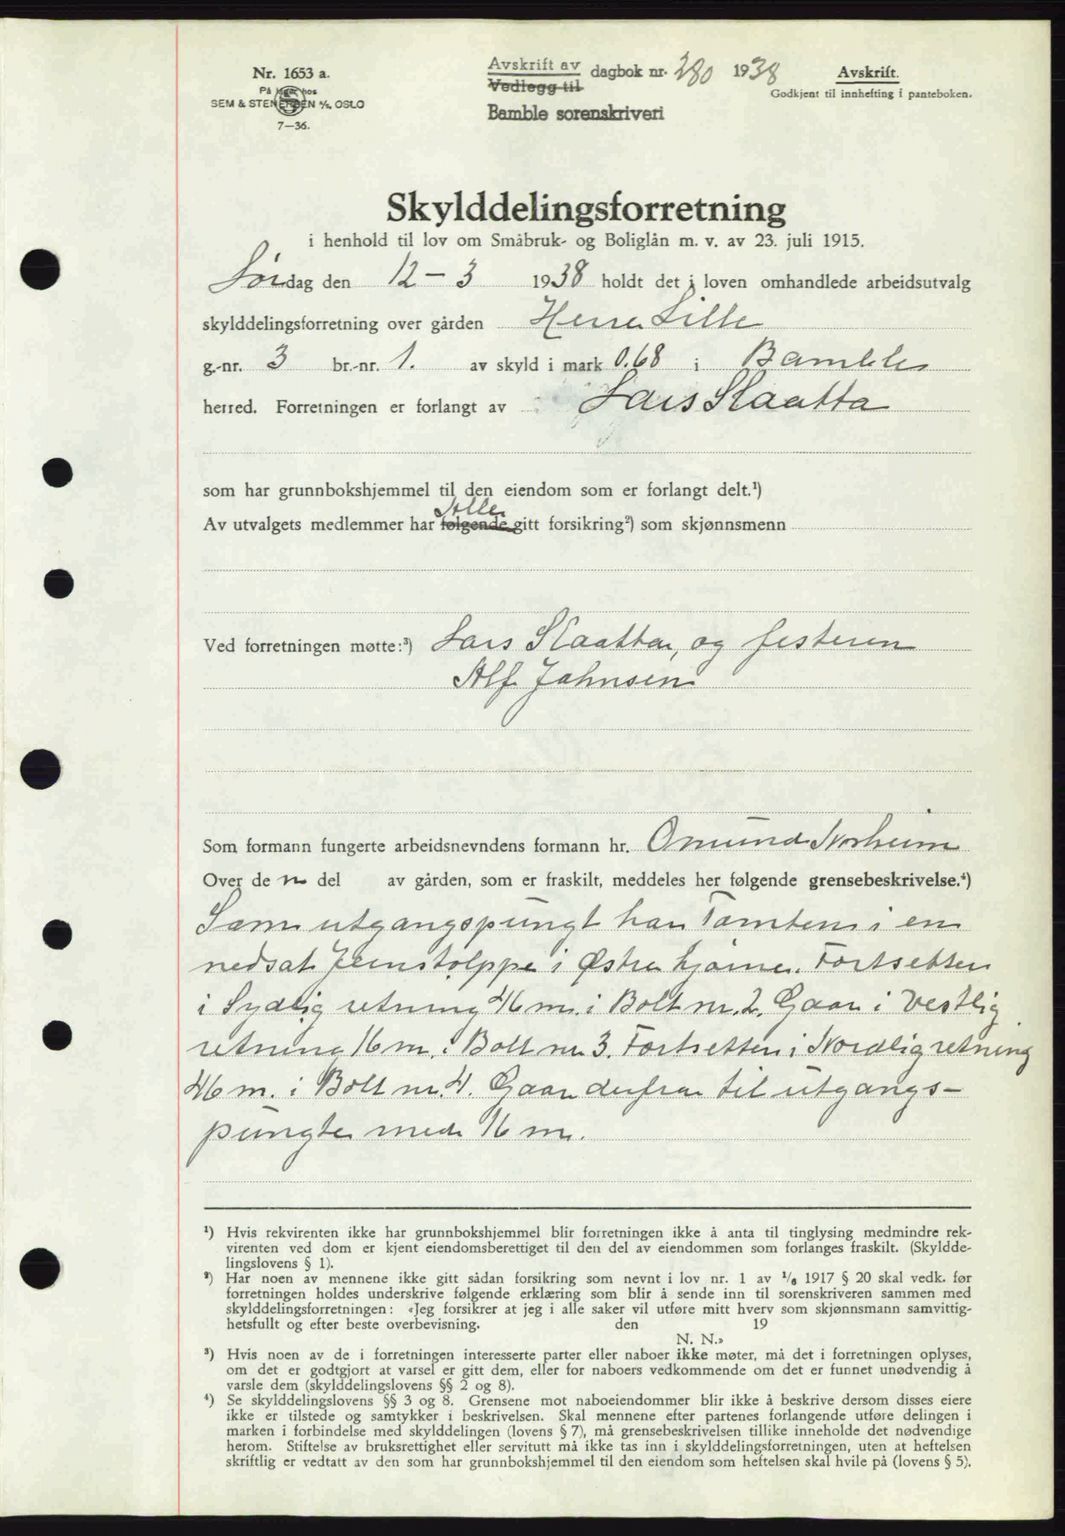 Nr. 1653 a.
På lager hos
SEM & STENERSEN A/S, OSLO
7—36.
Avskrift av dagbok nr. 280 1938
Vedlegg til
Bamble sorenskriveri
Avskrift.
Godkjent til innhefting i panteboken.
Skylddelingsforretning
i henhold til lov om Småbruk- og Boliglån m. v. av 23. juli 1915.
Lørdag den 12 – 3 1938 holdt det i loven omhandlede arbeidsutvalg
skylddelingsforretning over gården Herre Lille
g.-nr. 3 br.-nr. 1. av skyld i mark 0.68 i Bamble
herred. Forretningen er forlangt av Lars Slaatta
som har grunnbokshjemmel til den eiendom som er forlangt delt.¹)
Alle
Av utvalgets medlemmer har følgende gitt forsikring²) som skjønnsmenn
Ved forretningen møtte:³) Lars Slaatta, og festeren
Alf Johnsen
Som formann fungerte arbeidsnevndens formann hr. Omund Norheim
Over de n del av gården, som er fraskilt, meddeles her følgende grensebeskrivelse.⁴)
Som utgangspungt har Tomten i en
nedsat Jernstolppe i Østre hjørne. Fortsetter
i Sydlig retning 46 m. i Bolt nr. 2. Gaar i Vestlig
retning 16 m. i Bolt nr 3. Fortsetter i Nordlig retning
46 m. i Bolt nr. 4. Gaar derfra til utgangs-
pungte med 16 m.
¹) Hvis rekvirenten ikke har grunnbokshjemmel blir forretningen ikke å anta til tinglysing medmindre rek-
virenten ved dom er kjent eiendomsberettiget til den del av eiendommen som forlanges fraskilt. (Skyldde-
lingslovens § 1).
²) Har noen av mennene ikke gitt sådan forsikring som nevnt i lov nr. 1 av 1/6 1917 § 20 skal vedk. før
forretningen holdes underskrive følgende erklæring som blir å sende inn til sorenskriveren sammen med
skylddelingsforretningen: «Jeg forsikrer at jeg i alle saker vil utføre mitt hverv som skjønnsmann samvittig-
hetsfullt og efter beste overbevisning. den 19
N. N.»
³) Hvis noen av de i forretningen interesserte parter eller naboer ikke møter, må det i forretningen oplyses,
om det er godtgjort at varsel er gitt dem, eller for naboers vedkommende om det er funnet unødvendig å
varsle dem (skylddelingslovens §§ 2 og 8).
⁴) Se skylddelingslovens §§ 3 og 8. Grensene mot naboeiendommer blir ikke å beskrive dersom disses eiere
ikke er tilstede og samtykker i beskrivelsen. Skal mennene efter partenes forlangende utføre delingen i
marken i forbindelse med skylddelingen (lovens § 7), må grensebeskrivelsen tillike inneholde det nødvendige
herom. Stiftelse av bruksrettighet eller servitutt må ikke tas inn i skylddelingsforretningen, uten at heftelsen
skriftlig er vedtatt av den som har grunnbokshjemmel til den eiendom som heftelsen skal hvile på (lovens § 5).